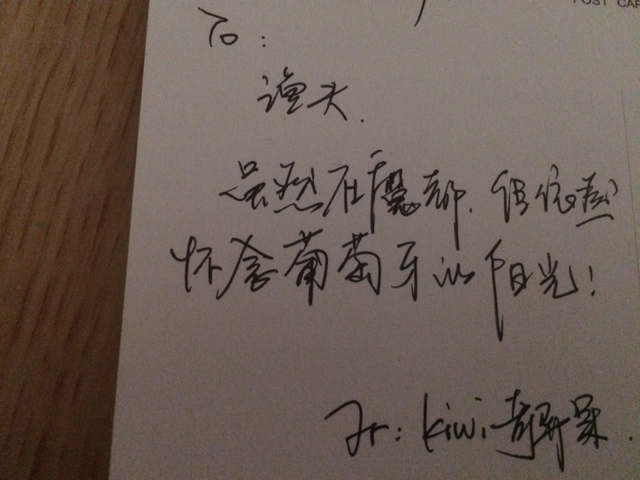 POST CAR
To:
馒头.
虽然在魔都.但依然
怀念葡萄牙的阳光!
Fr: kiwi奇异果.